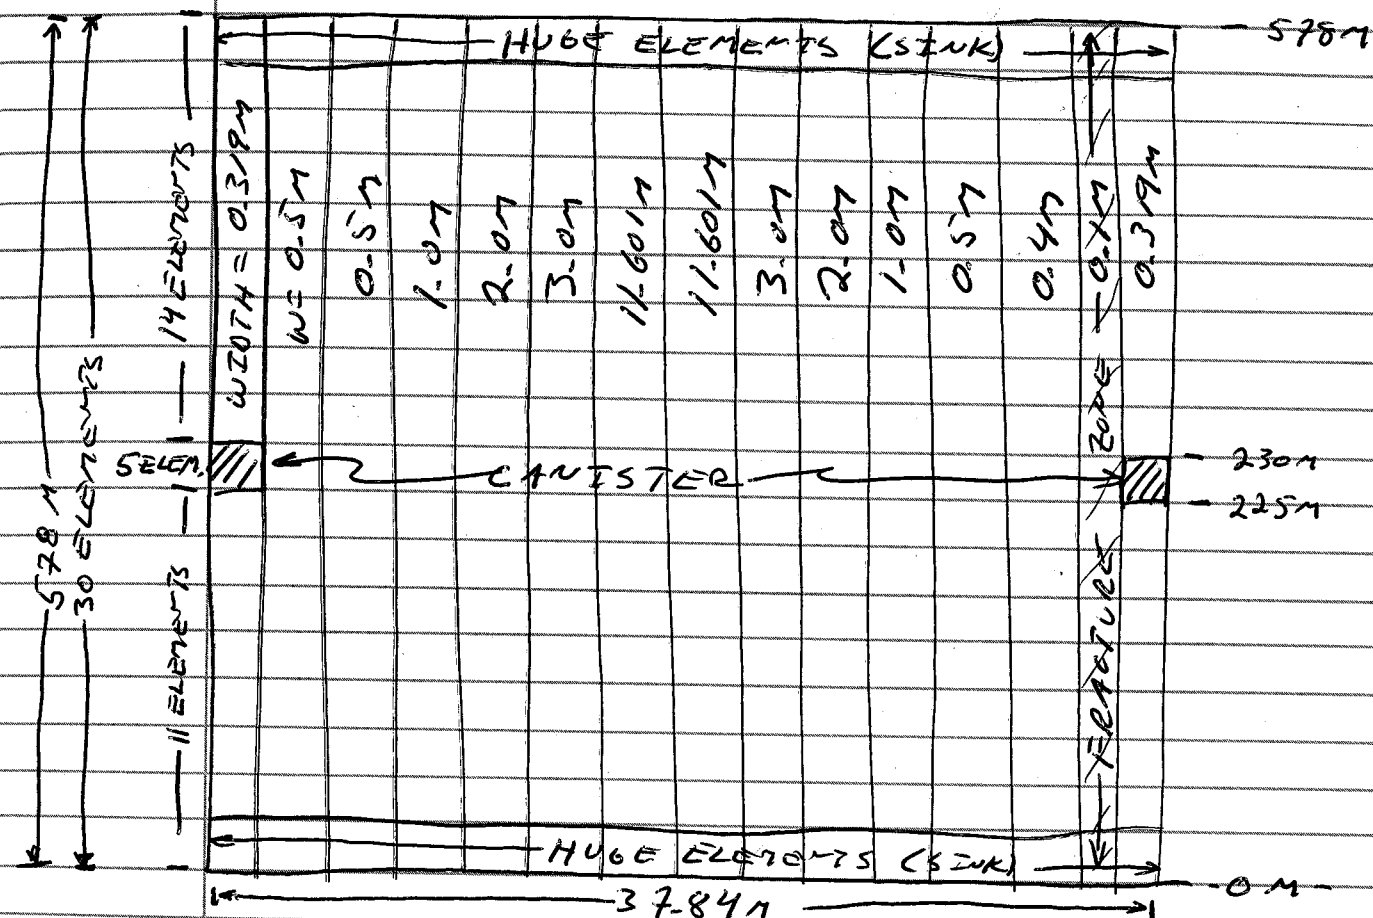 HUGE ELEMENTS (SINK)
578M
578 M
30 ELEMENTS
14 ELEMENTS
5 ELEM.
11 ELEMENTS
WIDTH = 0.319M
W = 0.5M
0.5M
1.0M
2.0M
3.0M
11.601M
11.601M
3.0M
2.0M
1.0M
0.5M
0.4M
0.1M
0.319M
FRACTURE ZONE
CANISTER
230M
225M
HUGE ELEMENTS (SINK)
0 M
37.84M